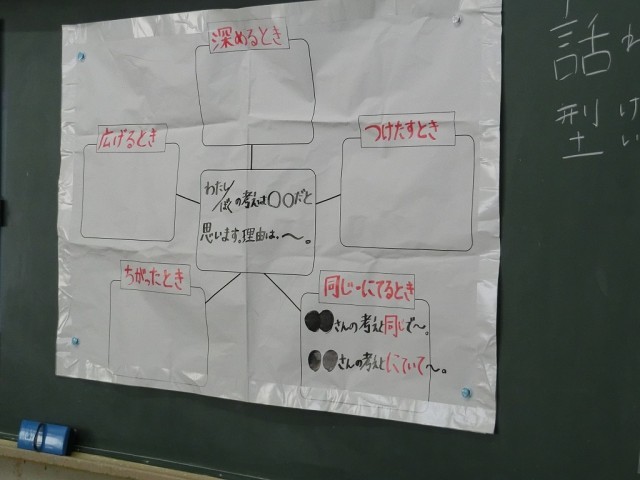 深めるとき
広げるとき
つけたすとき
わたし/ぼくの考えは〇〇だと
思います。理由は、～。
ちがったとき
同じ・にてるとき
●●さんの考えと同じで～。
●●さんの考えとにていて～。
話
型
けい